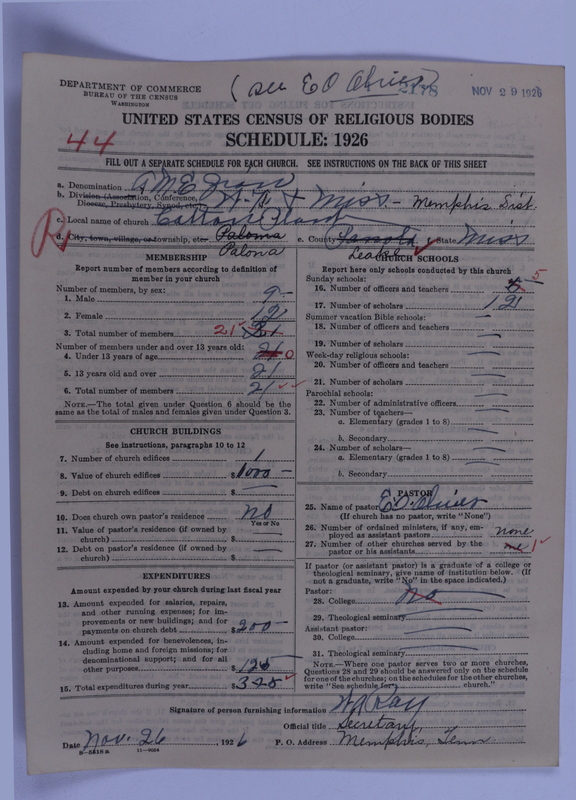 DEPARTMENT OF COMMERCE
BUREAU OF THE CENSUS
WASHINGTON
(see E O
2178
NOV 29 1926
UNITED STATES CENSUS OF RELIGIOUS BODIES
SCHEDULE: 1926
44
FILL OUT A SEPARATE SCHEDULE FOR EACH CHURCH. SEE INSTRUCTIONS ON THE BACK OF THIS SHEET
a. Denomination A M E
b. Division (Association, Conference, Diocese, Presbytery, Synod, etc.) Miss - Memphis Dist.
c. Local name of church
d. City, town, village, or township, etc. Paloma e. County State Miss
Palona Leake
MEMBERSHIP
Report number of members according to definition of member in your church
Number of members, by sex:
1. Male 9
2. Female 12
3. Total number of members 21
Number of members under and over 13 years old:
4. Under 13 years of age 0
5. 13 years old and over 21
6. Total number of members 21
NOTE.—The total given under Question 6 should be the same as the total of males and females given under Question 3.
CHURCH BUILDINGS
See instructions, paragraphs 10 to 12
7. Number of church edifices 1
8. Value of church edifices $1000-
9. Debt on church edifices $
10. Does church own pastor's residence No
Yes or No
11. Value of pastor's residence (if owned by church) $
12. Debt on pastor's residence (if owned by church) $
EXPENDITURES
Amount expended by church during last fiscal year
13. Amount expended for salaries, repairs, and other running expenses; for improvements or new buildings; and for payments on church debt $200-
14. Amount expended for benevolences, including home and foreign missions; for denominational support; and for all other purposes 125
15. Total expenditures during year $325
CHURCH SCHOOLS
Report here only schools conducted by this church
Sunday schools:
16. Number of officers and teachers 5
17. Number of scholars 12
Summer vacation Bible schools:
18. Number of officers and teachers
19. Number of scholars
Week-day religious schools:
20. Number of officers and teachers
21. Number of scholars
Parochial schools:
22. Number of administrative officers
23. Number of teachers—
a. Elementary (grades 1 to 8)
b. Secondary
24. Number of scholars—
a. Elementary (grades 1 to 8)
b. Secondary
PASTOR
25. Name of pastor E. O.
(If church has no pastor, write "None")
26. Number of ordained ministers, if any, employed as assistant pastors none
27. Number of other churches served by the pastor or his assistants 1
If pastor (or assistant pastor) is a graduate of a college or theological seminary, give name of institution below. (If not a graduate, write "No" in the space indicated.)
Pastor:
28. College No
29. Theological seminary
Assistant pastor:
30. College
31. Theological seminary
NOTE.—Where one pastor serves two or more churches, Questions 28 and 29 should be answered only on the schedule for one of the churches; on the schedules for the other churches, write "See schedule for church."
Signature of person furnishing information
Official title Secretary
Date Nov. 26 1926 P. O. Address Memphis, Tenn